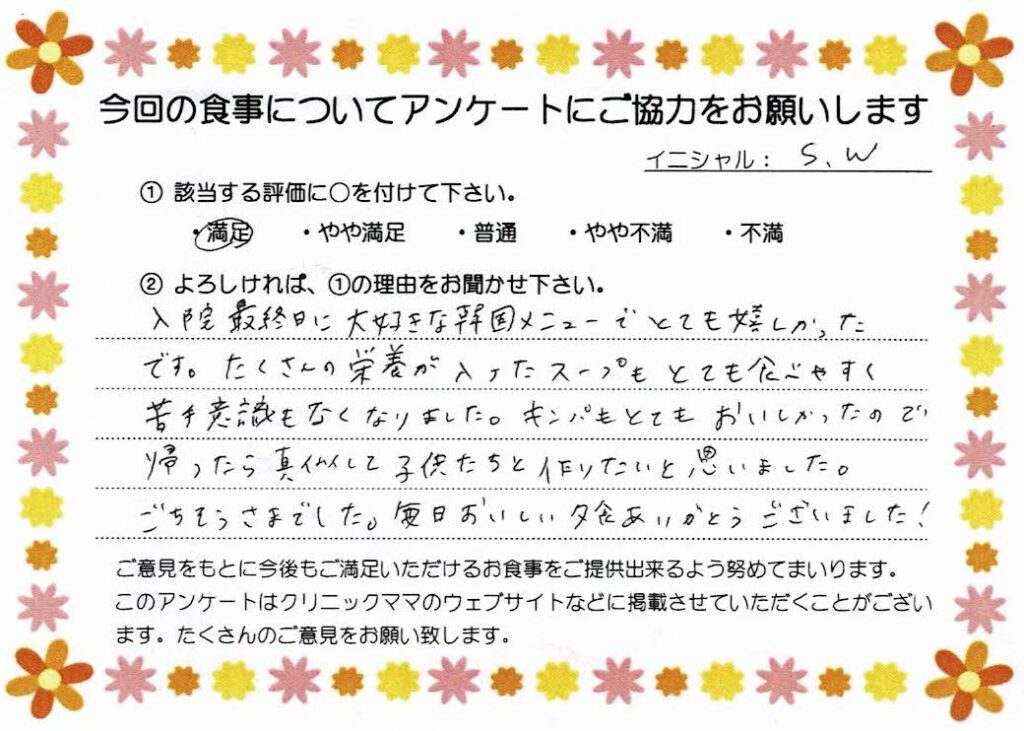 今回の食事についてアンケートにご協力をお願いします
イニシャル： S、W
① 該当する評価に○を付けて下さい。
・満足 ・やや満足 ・普通 ・やや不満 ・不満
② よろしければ、①の理由をお聞かせ下さい。
入院最終日に大好きな韓国メニューでとても嬉しかった
です。たくさんの栄養が入ったスープもとても食べやすく
苦手意識もなくなりました。キンパもとてもおいしかったので
帰ったら真似して子供たちと作りたいと思いました。
ごちそうさまでした。毎日おいしい夕食ありがとうございました！
ご意見をもとに今後もご満足いただけるお食事をご提供出来るよう努めてまいります。
このアンケートはクリニックママのウェブサイトなどに掲載させていただくことがござい
ます。たくさんのご意見をお願い致します。